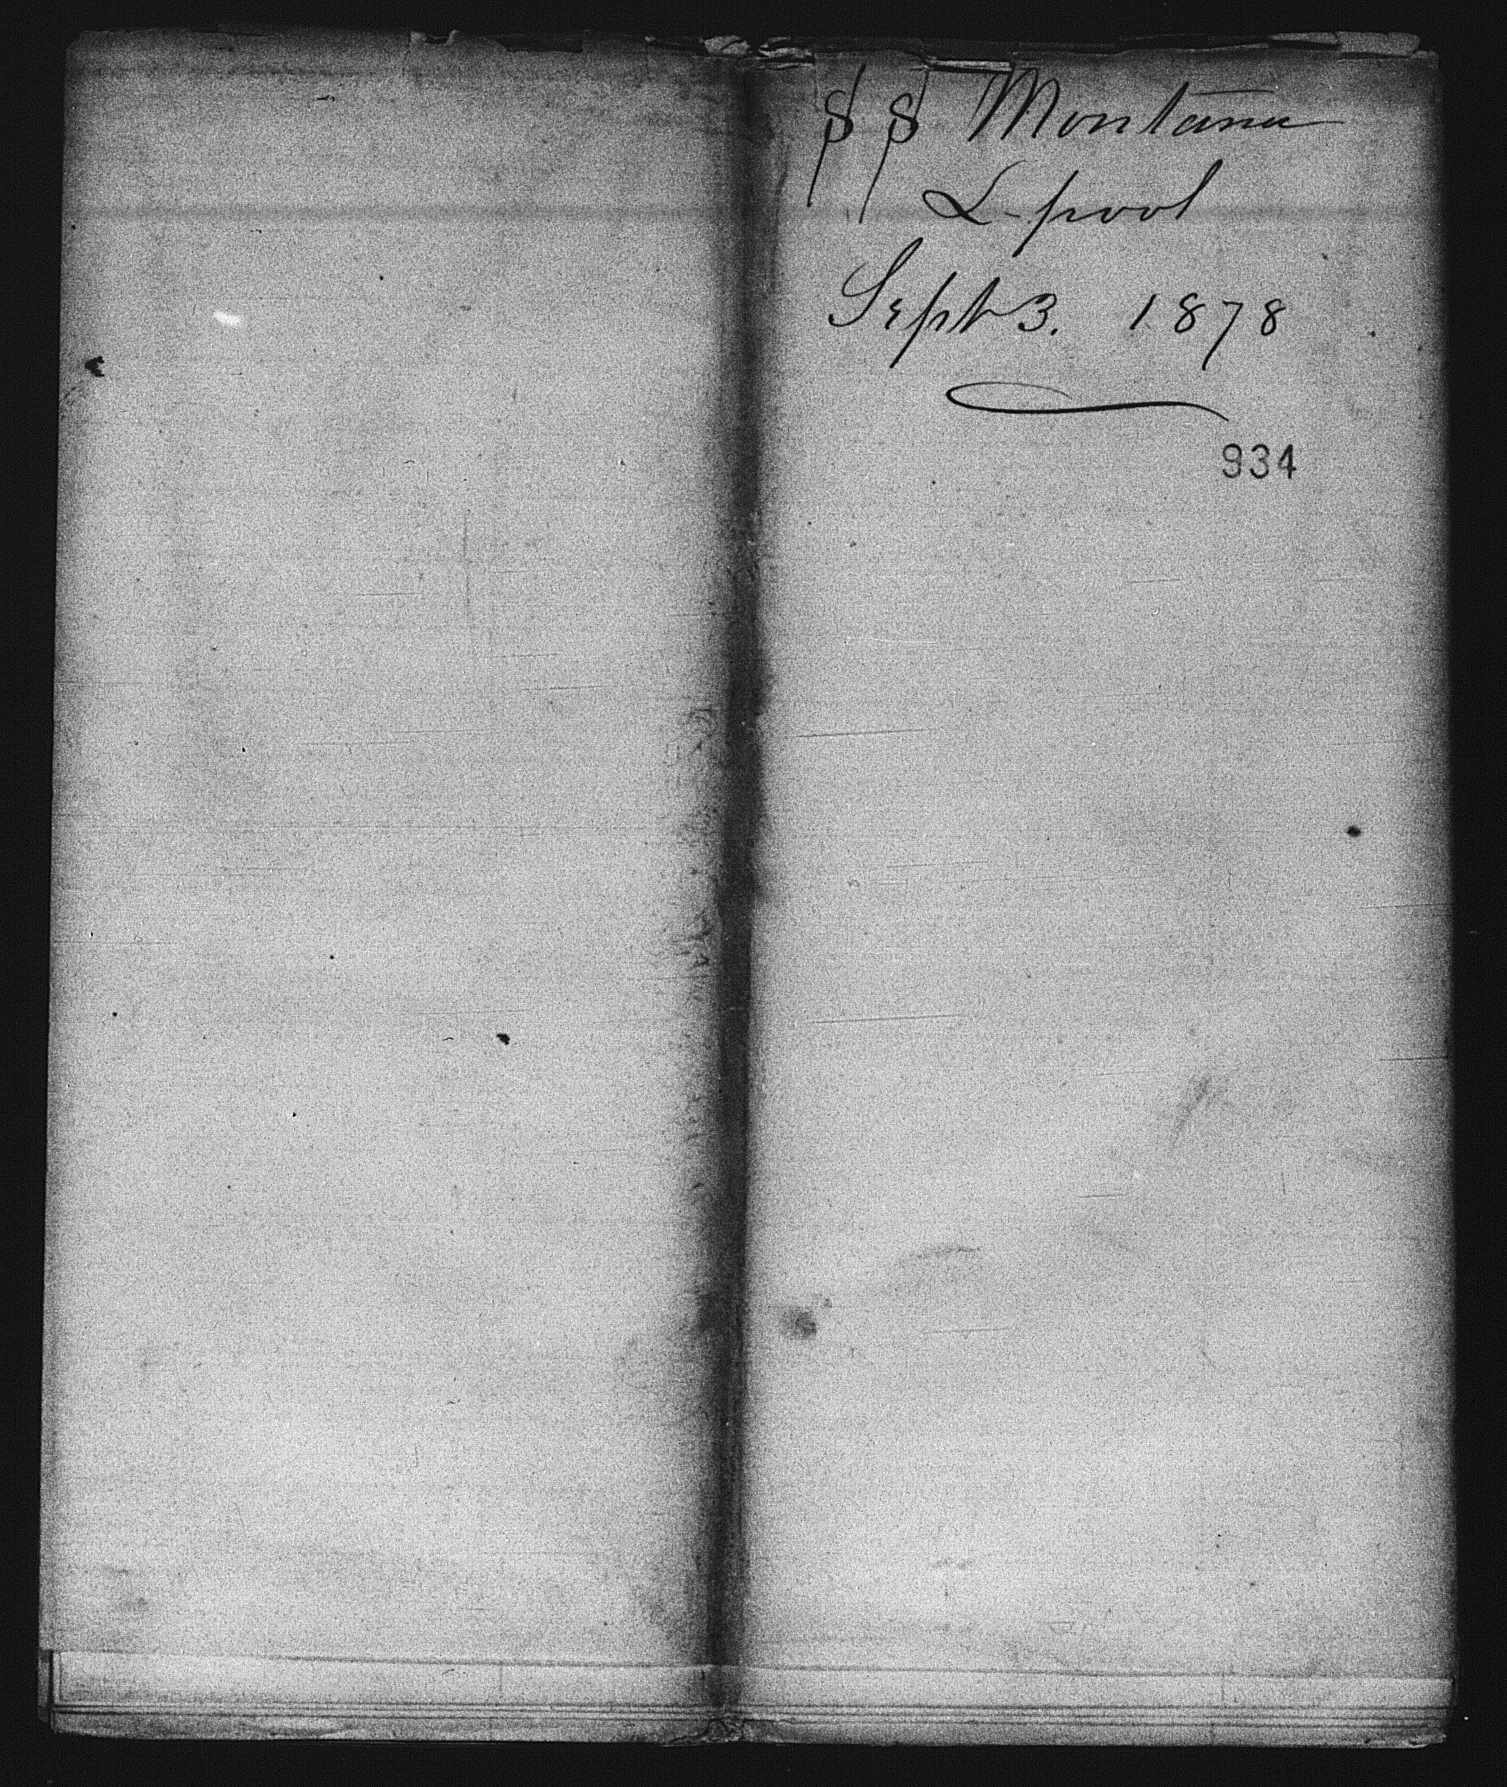 SS Montana
L-pool
Sept 3. 1878
934